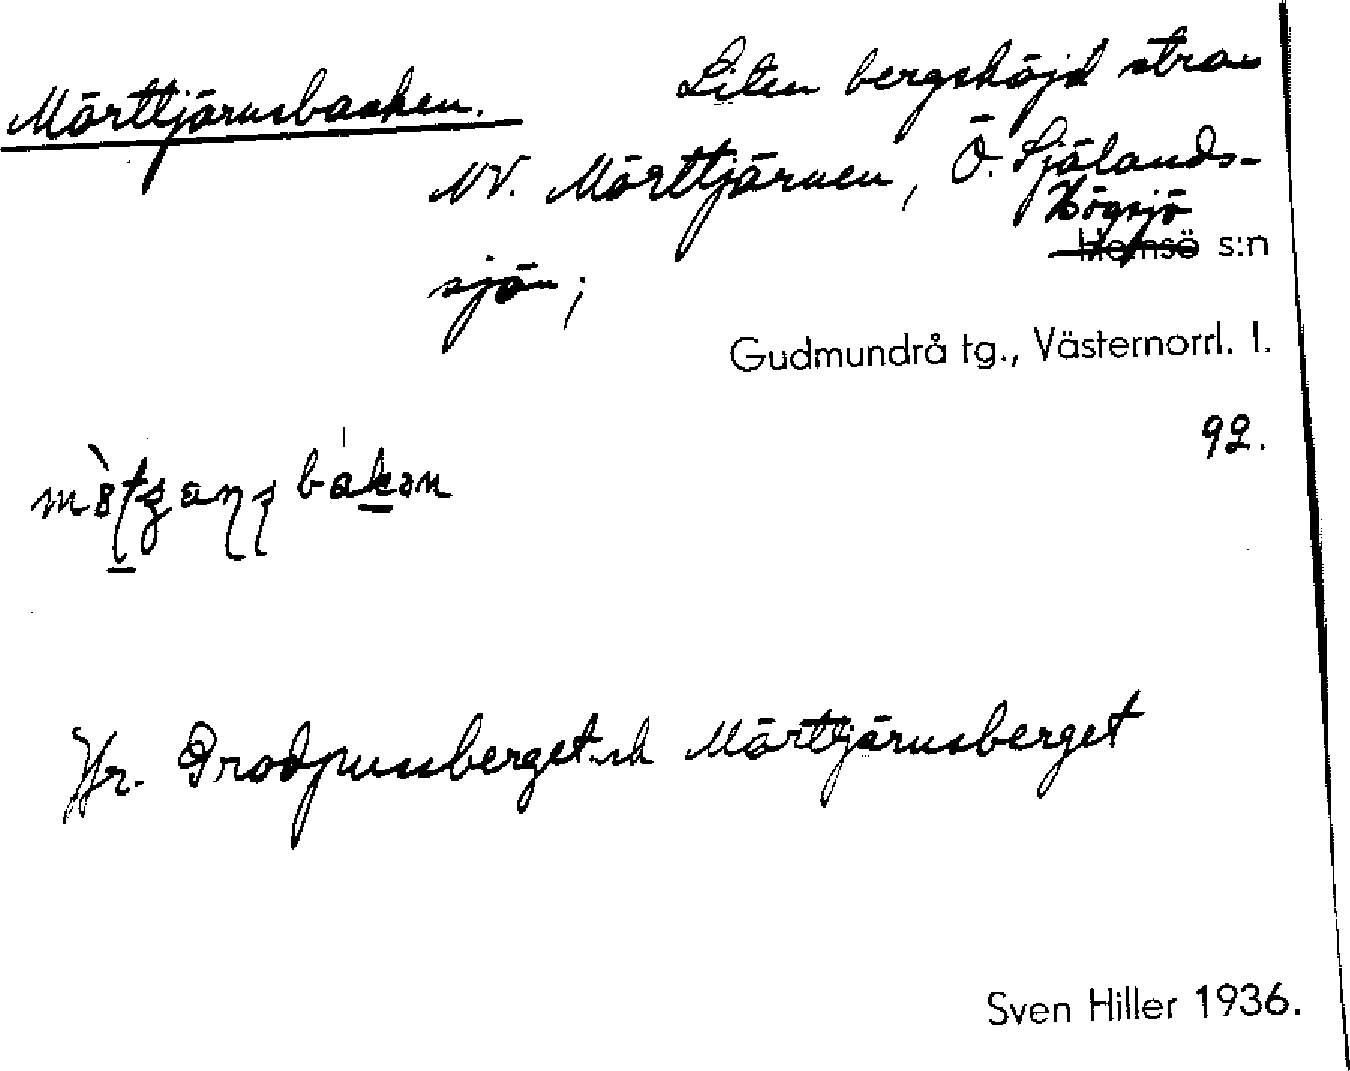 Mörttjärnsbacken.
Liten bergshöjd strax
NV. Mörttjärnen, Ö. Själands-
Högsjö
sjön;
Hemsö s:n
Gudmundrå tg., Västernorrl. l.
92.
Jfr. Brodpussberget och Mörttjärnsberget
Sven Hiller 1936.